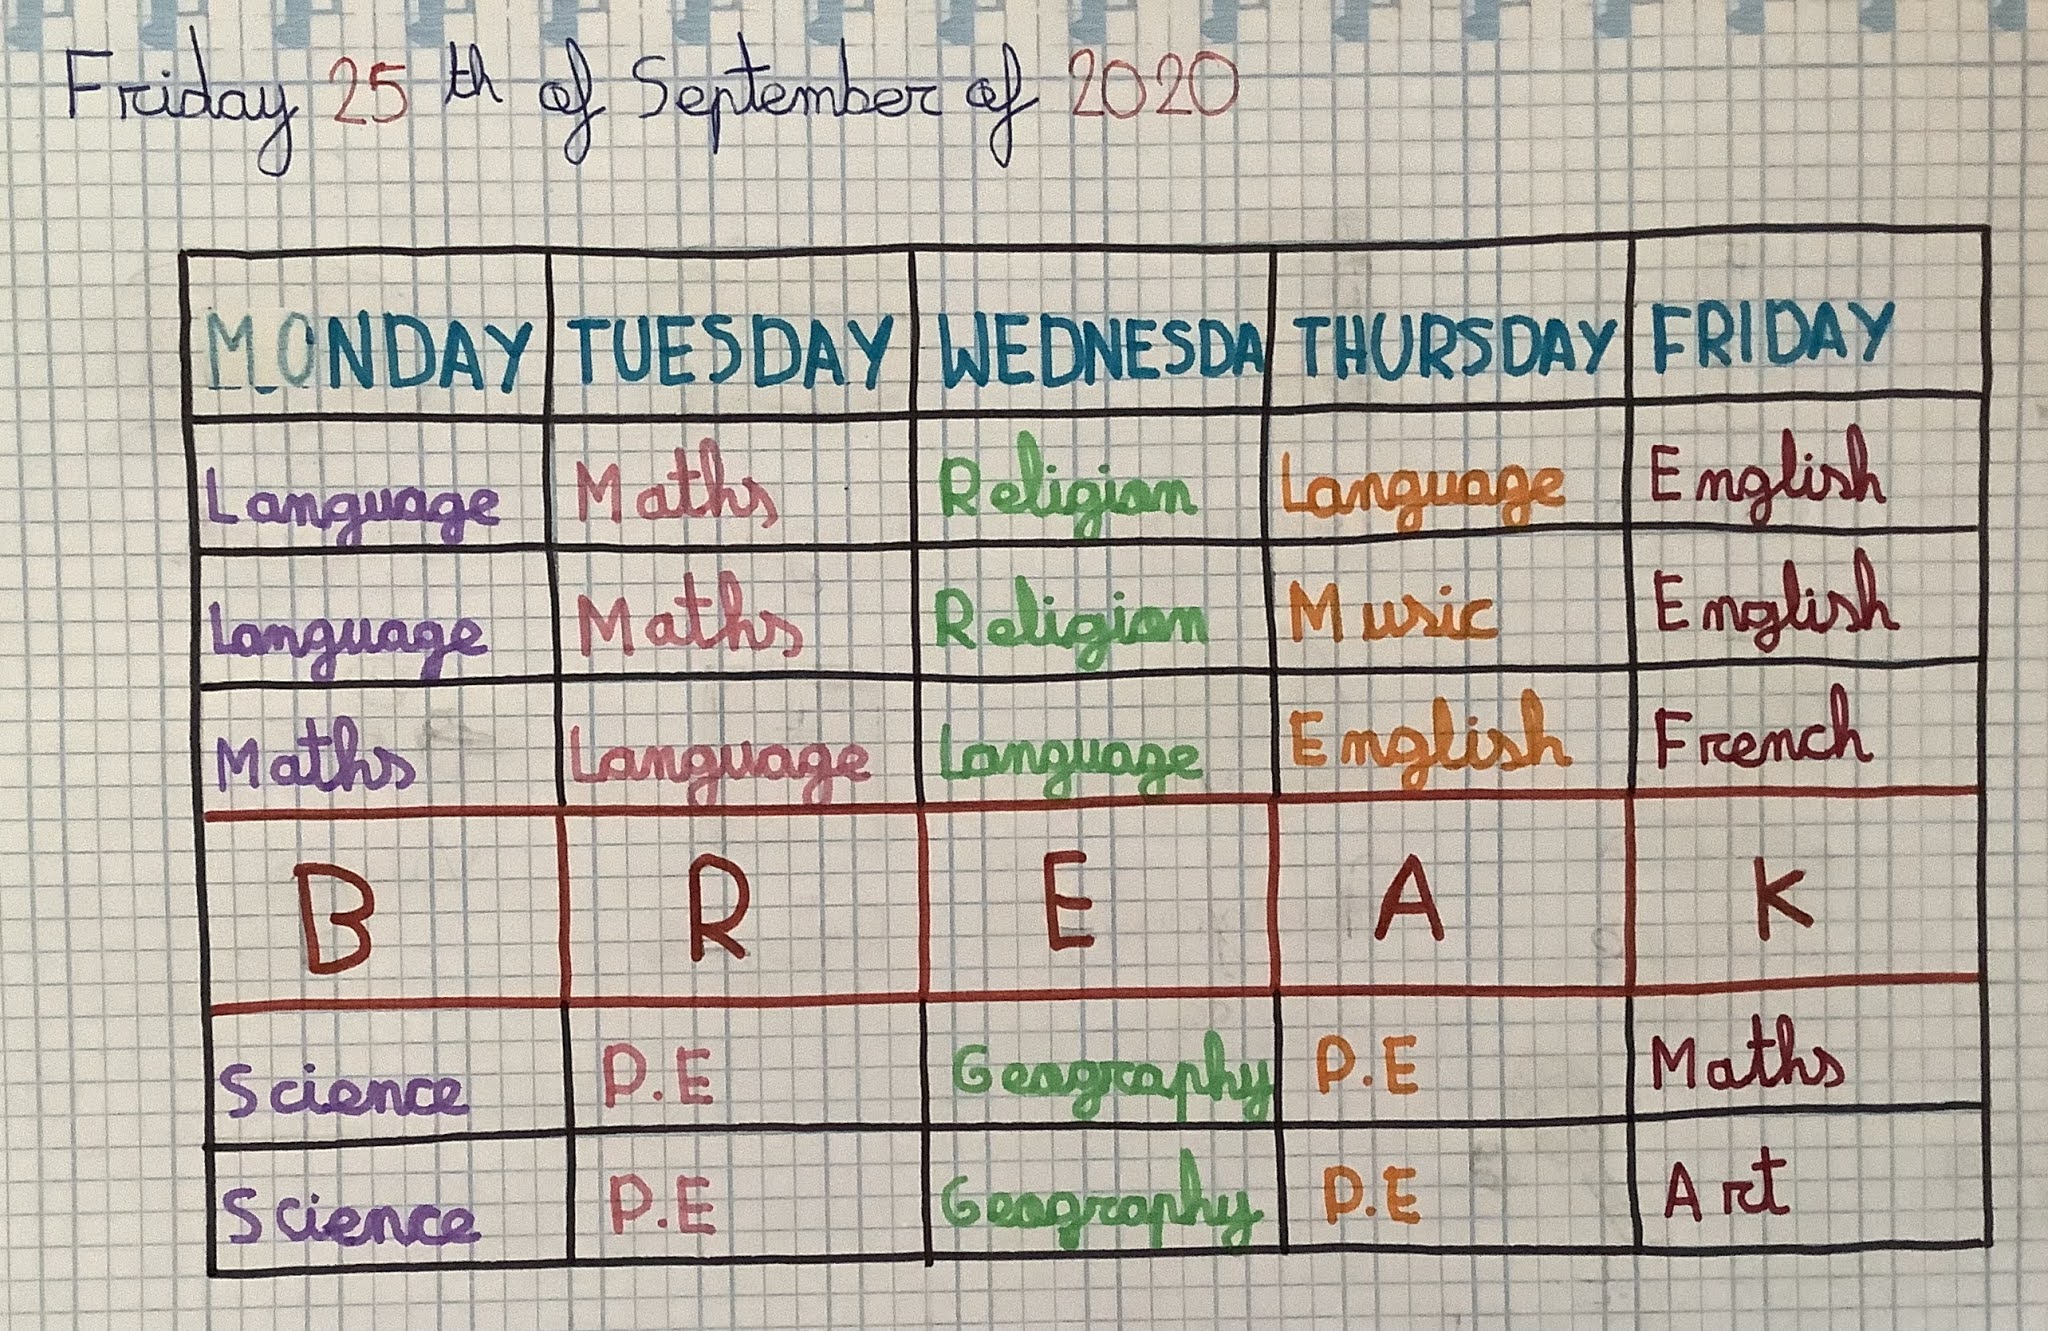 Friday 25 th of September of 2020
MONDAY TUESDAY WEDNESDA THURSDAY FRIDAY
Language Maths Religion Language English
Language Maths Religion Music English
Maths Language Language English French
B R E A K
Science P.E Geography P.E Maths
Science P.E Geography P.E Art